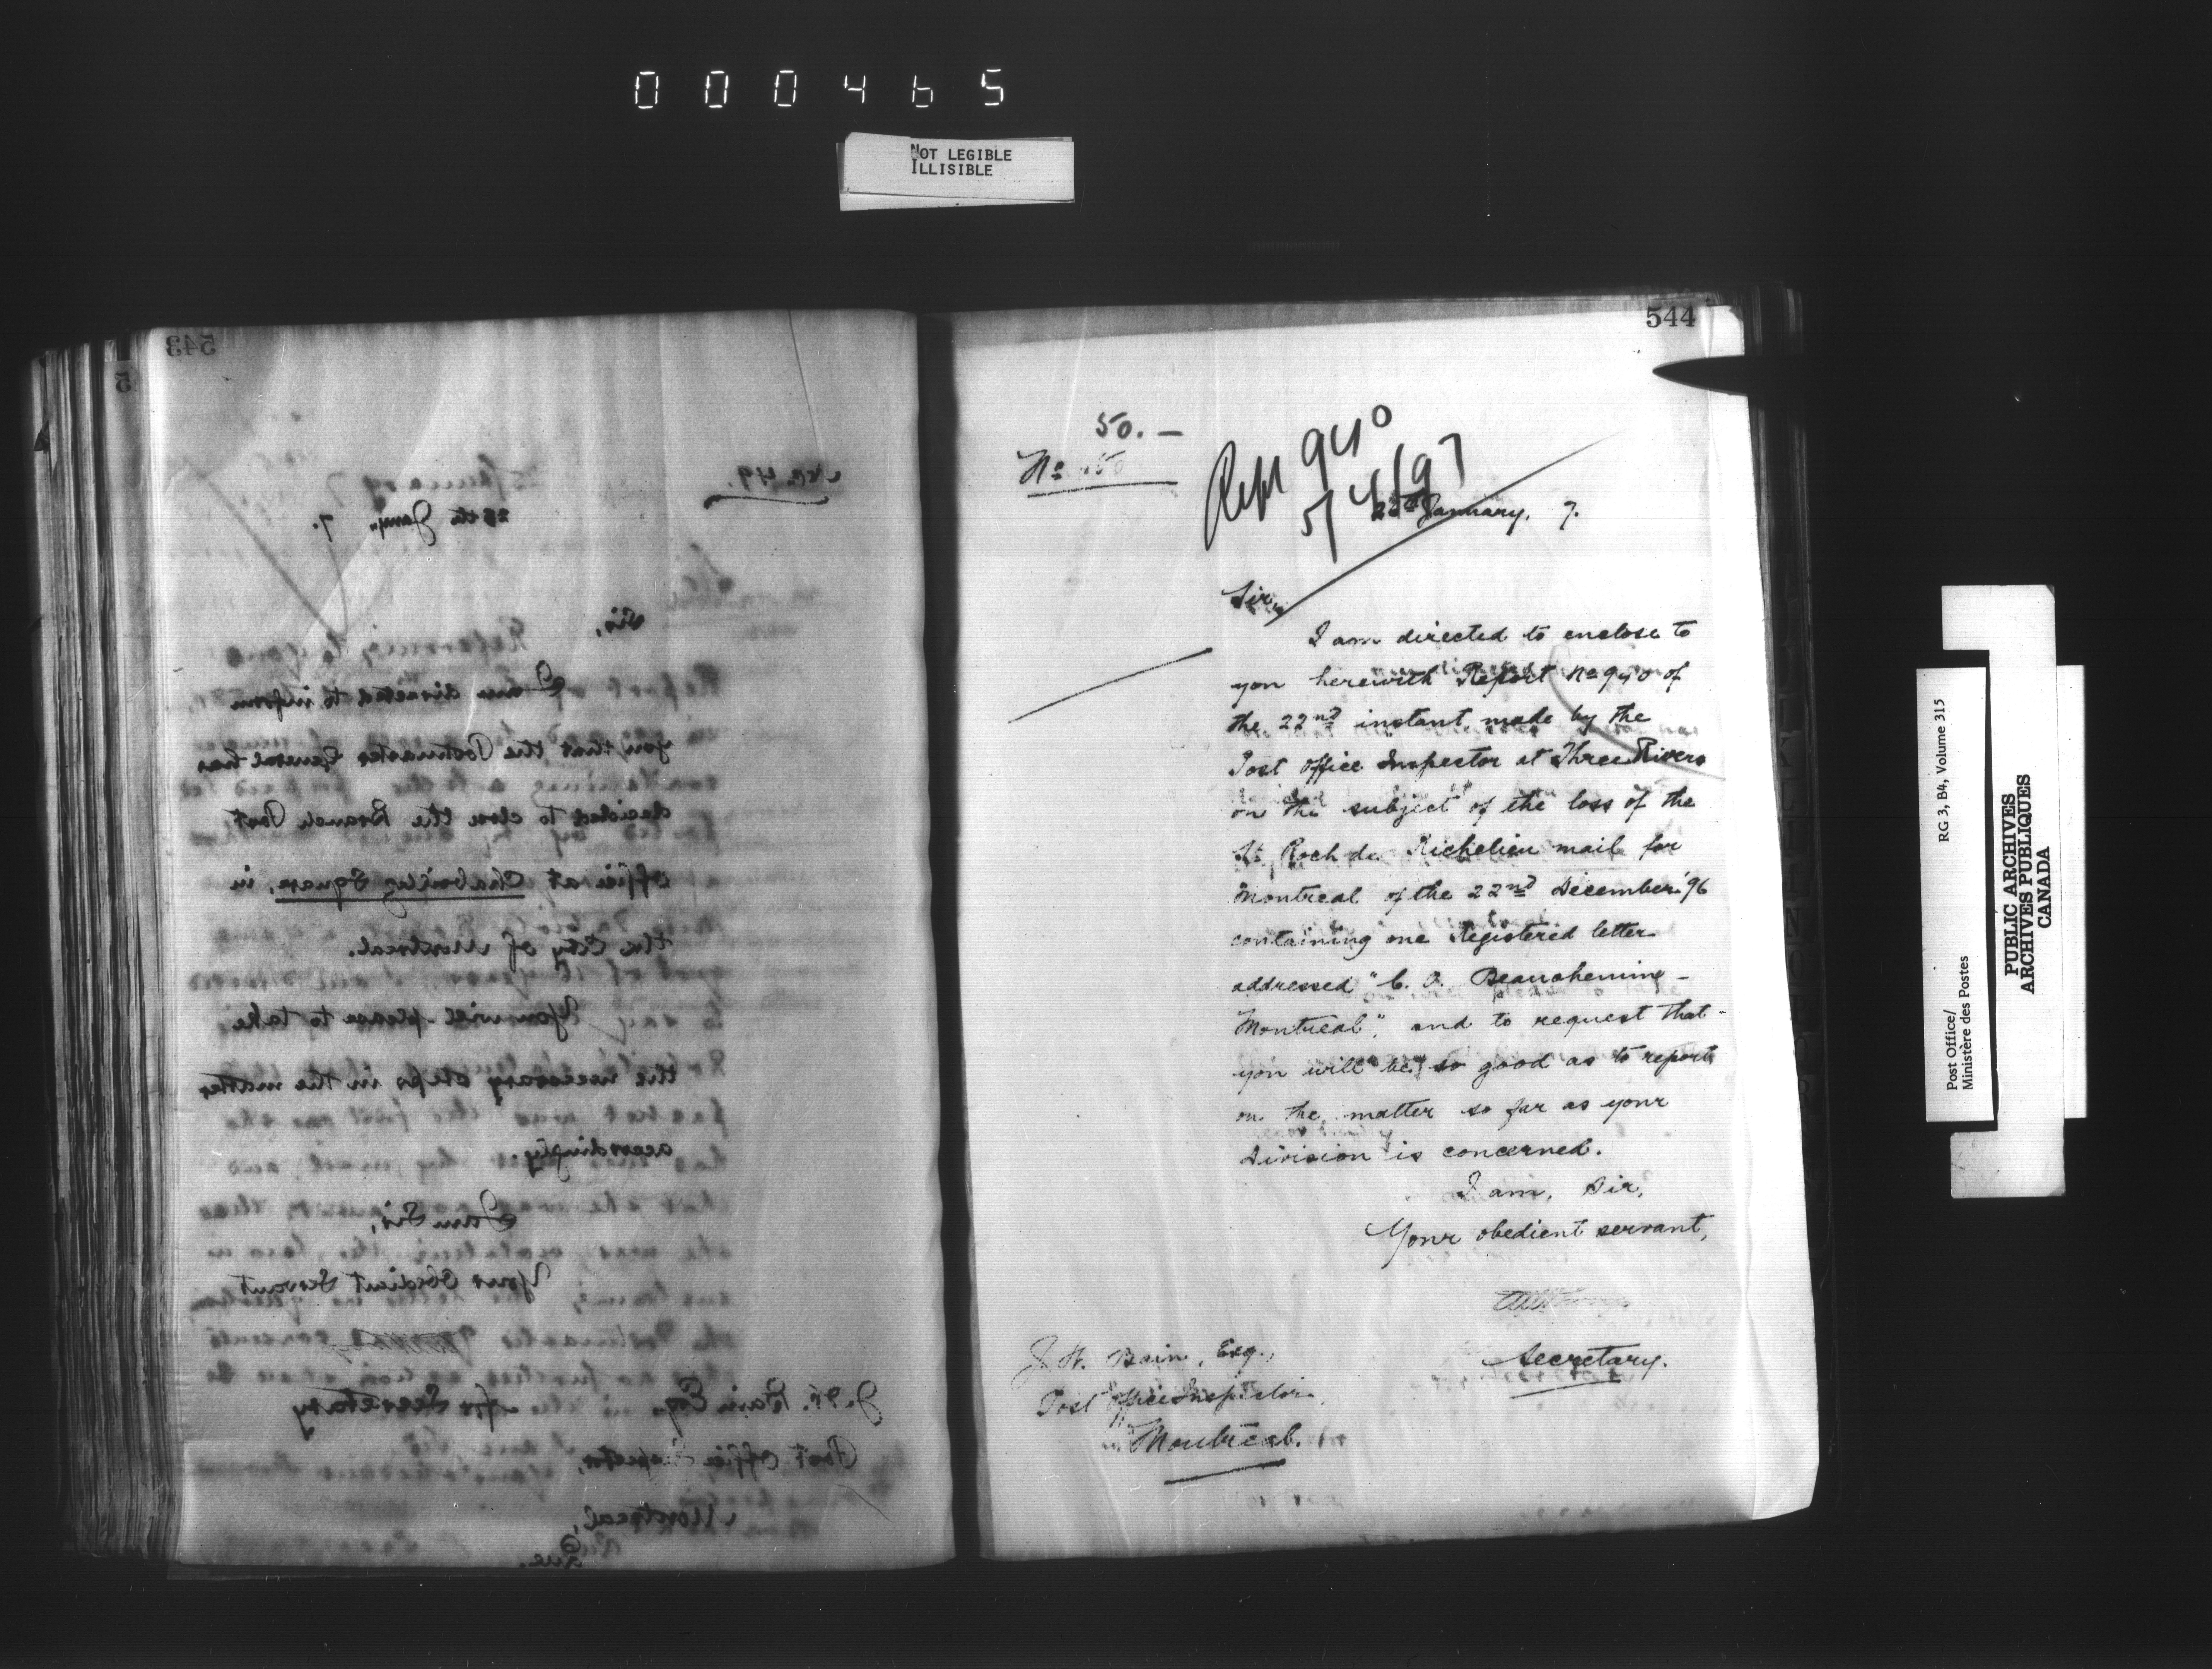 000465
NOT LEGIBLE
ILLISIBLE
543
No. 49.
25th Jany. 7.
Sir,
I am directed to inform
you that the Postmaster General has
decided to close the Branch Post
Office at Chaboillez Square, in
the City of Montreal.
You will please to take
the necessary steps in the matter
accordingly.
I am Sir,
Your Obedient Servant
for Secretary
J. H. Bain Esq.
Post Office Inspector,
Montreal,
Que.
544
50. —
No
Rept 940
5/4/97
January, 7.
Sir,
I am directed to enclose to
you herewith Report No 940 of
the 22nd instant, made by the
Post Office Inspector at Three Rivers
on the subject of the loss of the
St. Roch de Richelieu mail for
Montreal of the 22nd December '96
containing one Registered letter
addressed "C. O. Beauchemin –
Montreal", and to request that
you will be so good as to report
on the matter so far as your
Division is concerned.
I am, Sir,
Your obedient servant,
Secretary.
J. H. Bain, Esq.,
Post Office Inspector,
Montreal.
Post Office/
Ministère des Postes
RG 3, B4, Volume 315
PUBLIC ARCHIVES
ARCHIVES PUBLIQUES
CANADA